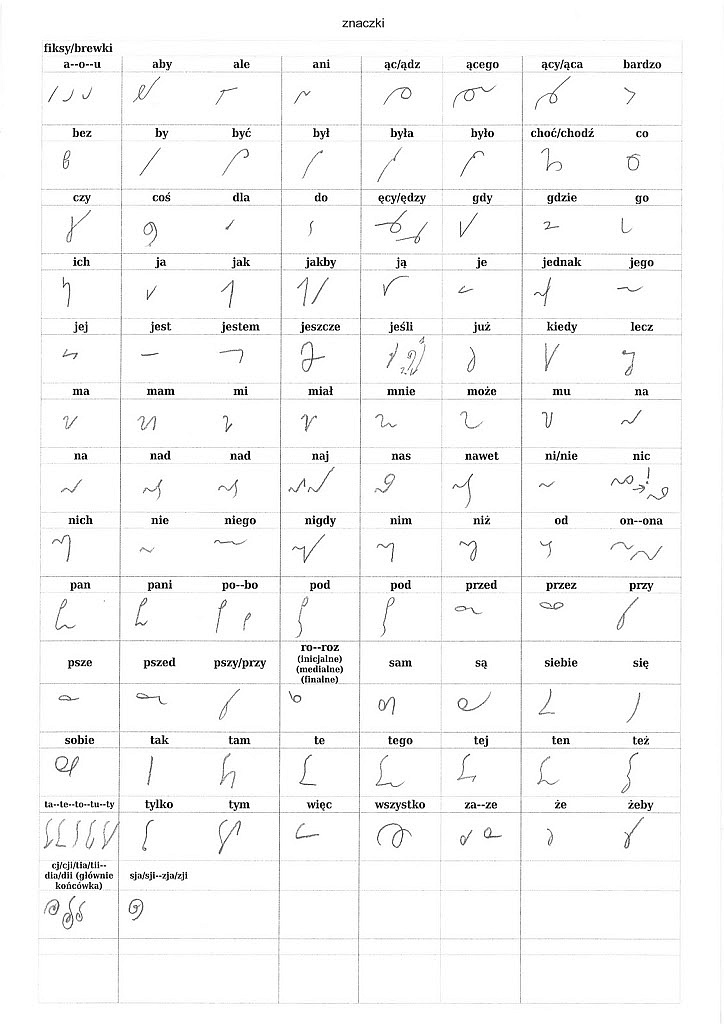 znaczki
fiksy/brewki
a--o--u aby ale ani ąc/ądz ącego ący/ąca bardzo
bez by być był była było choć/chodź co
czy coś dla do ęcy/ędzy gdy gdzie go
ich ja jak jakby ją je jednak jego
jej jest jestem jeszcze jeśli już kiedy lecz
ma mam mi miał mnie może mu na
na nad nad naj nas nawet ni/nie nic
nich nie niego nigdy nim niż od on--ona
pan pani po--bo pod pod przed przez przy
ro--roz
(inicjalne)
psze pszed pszy/przy (medialne) sam są siebie się
(finalne)
sobie tak tam te tego tej ten też
ta--te--to--tu--ty tylko tym więc wszystko za--ze że żeby
cj/cji/tia/tii--
dia/dii (głównie sja/sji--zja/zji
końcówka)